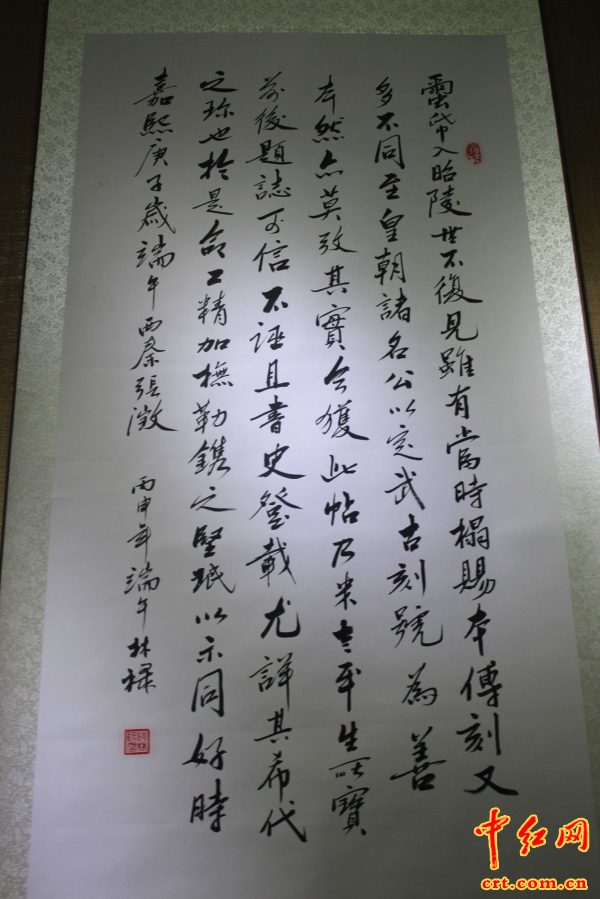 蠒帋入昭陵世不復見雖有當時搨賜本傳刻又
多不同至皇朝諸名公以定武古刻號為善
本然亦莫攷其實今獲此帖乃米老平生所寶
前後題誌可信不誣且書史登載尤詳其希代
之珎也於是命工精加橅勒鐫之堅珉以示同好時
嘉熙庚子歲端午西秦張澂
丙申年端午林祿
中红网
crt.com.cn